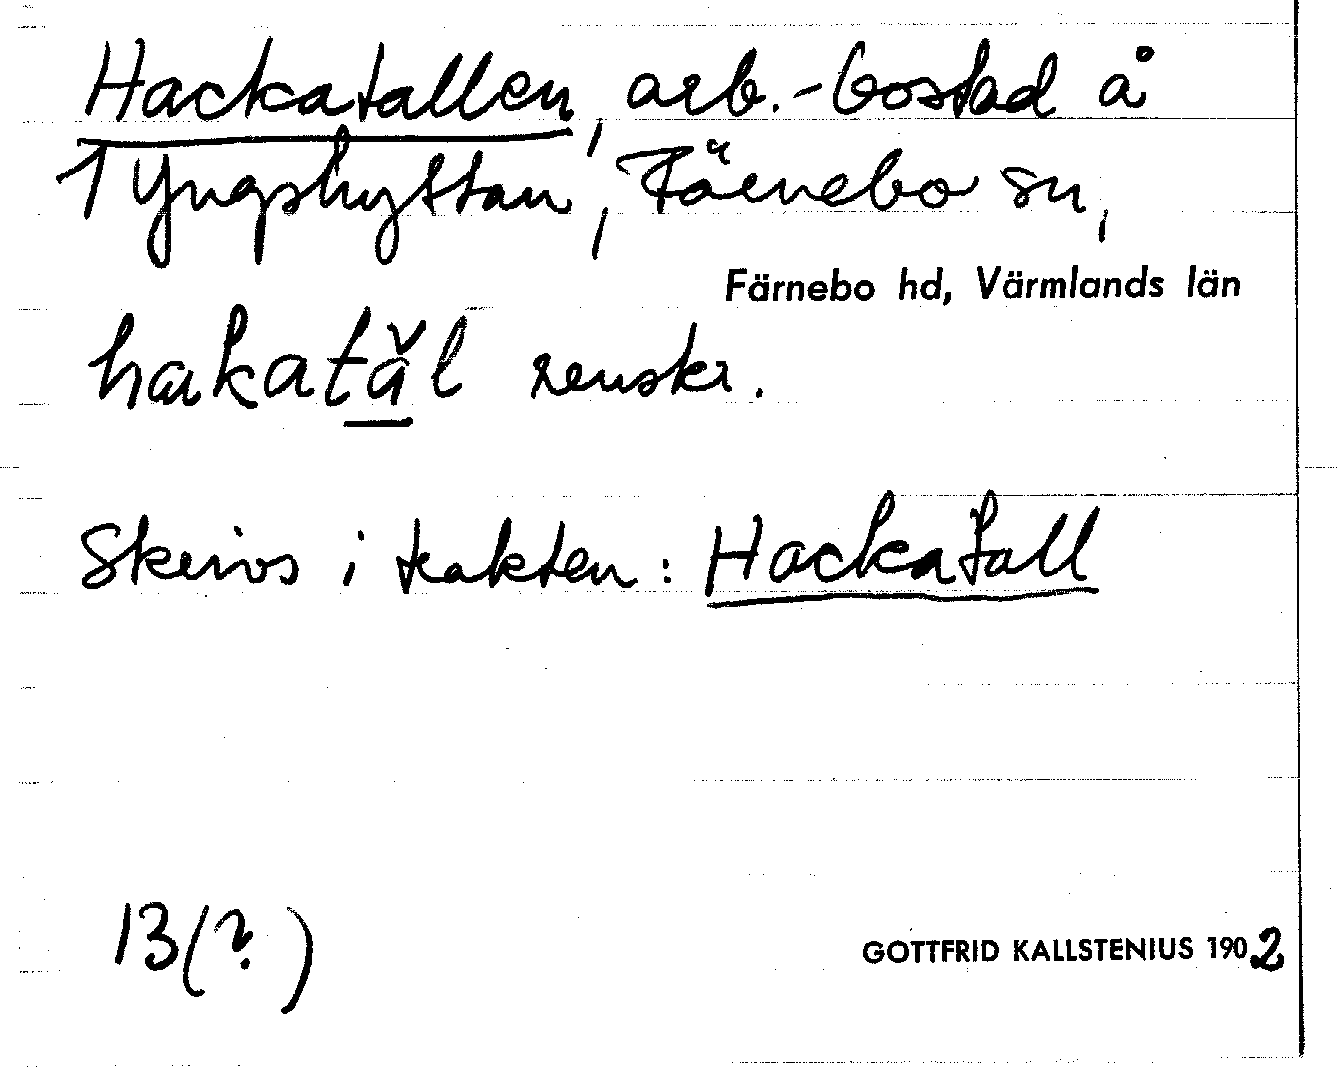 Hackatallen, arb.-bostad å
1 Yngshyttan, Färnebo sn,
Färnebo hd, Värmlands län
hakatăl renskr.
Skrivs i trakten: Hackatall
13(?)
GOTTFRID KALLSTENIUS 1902